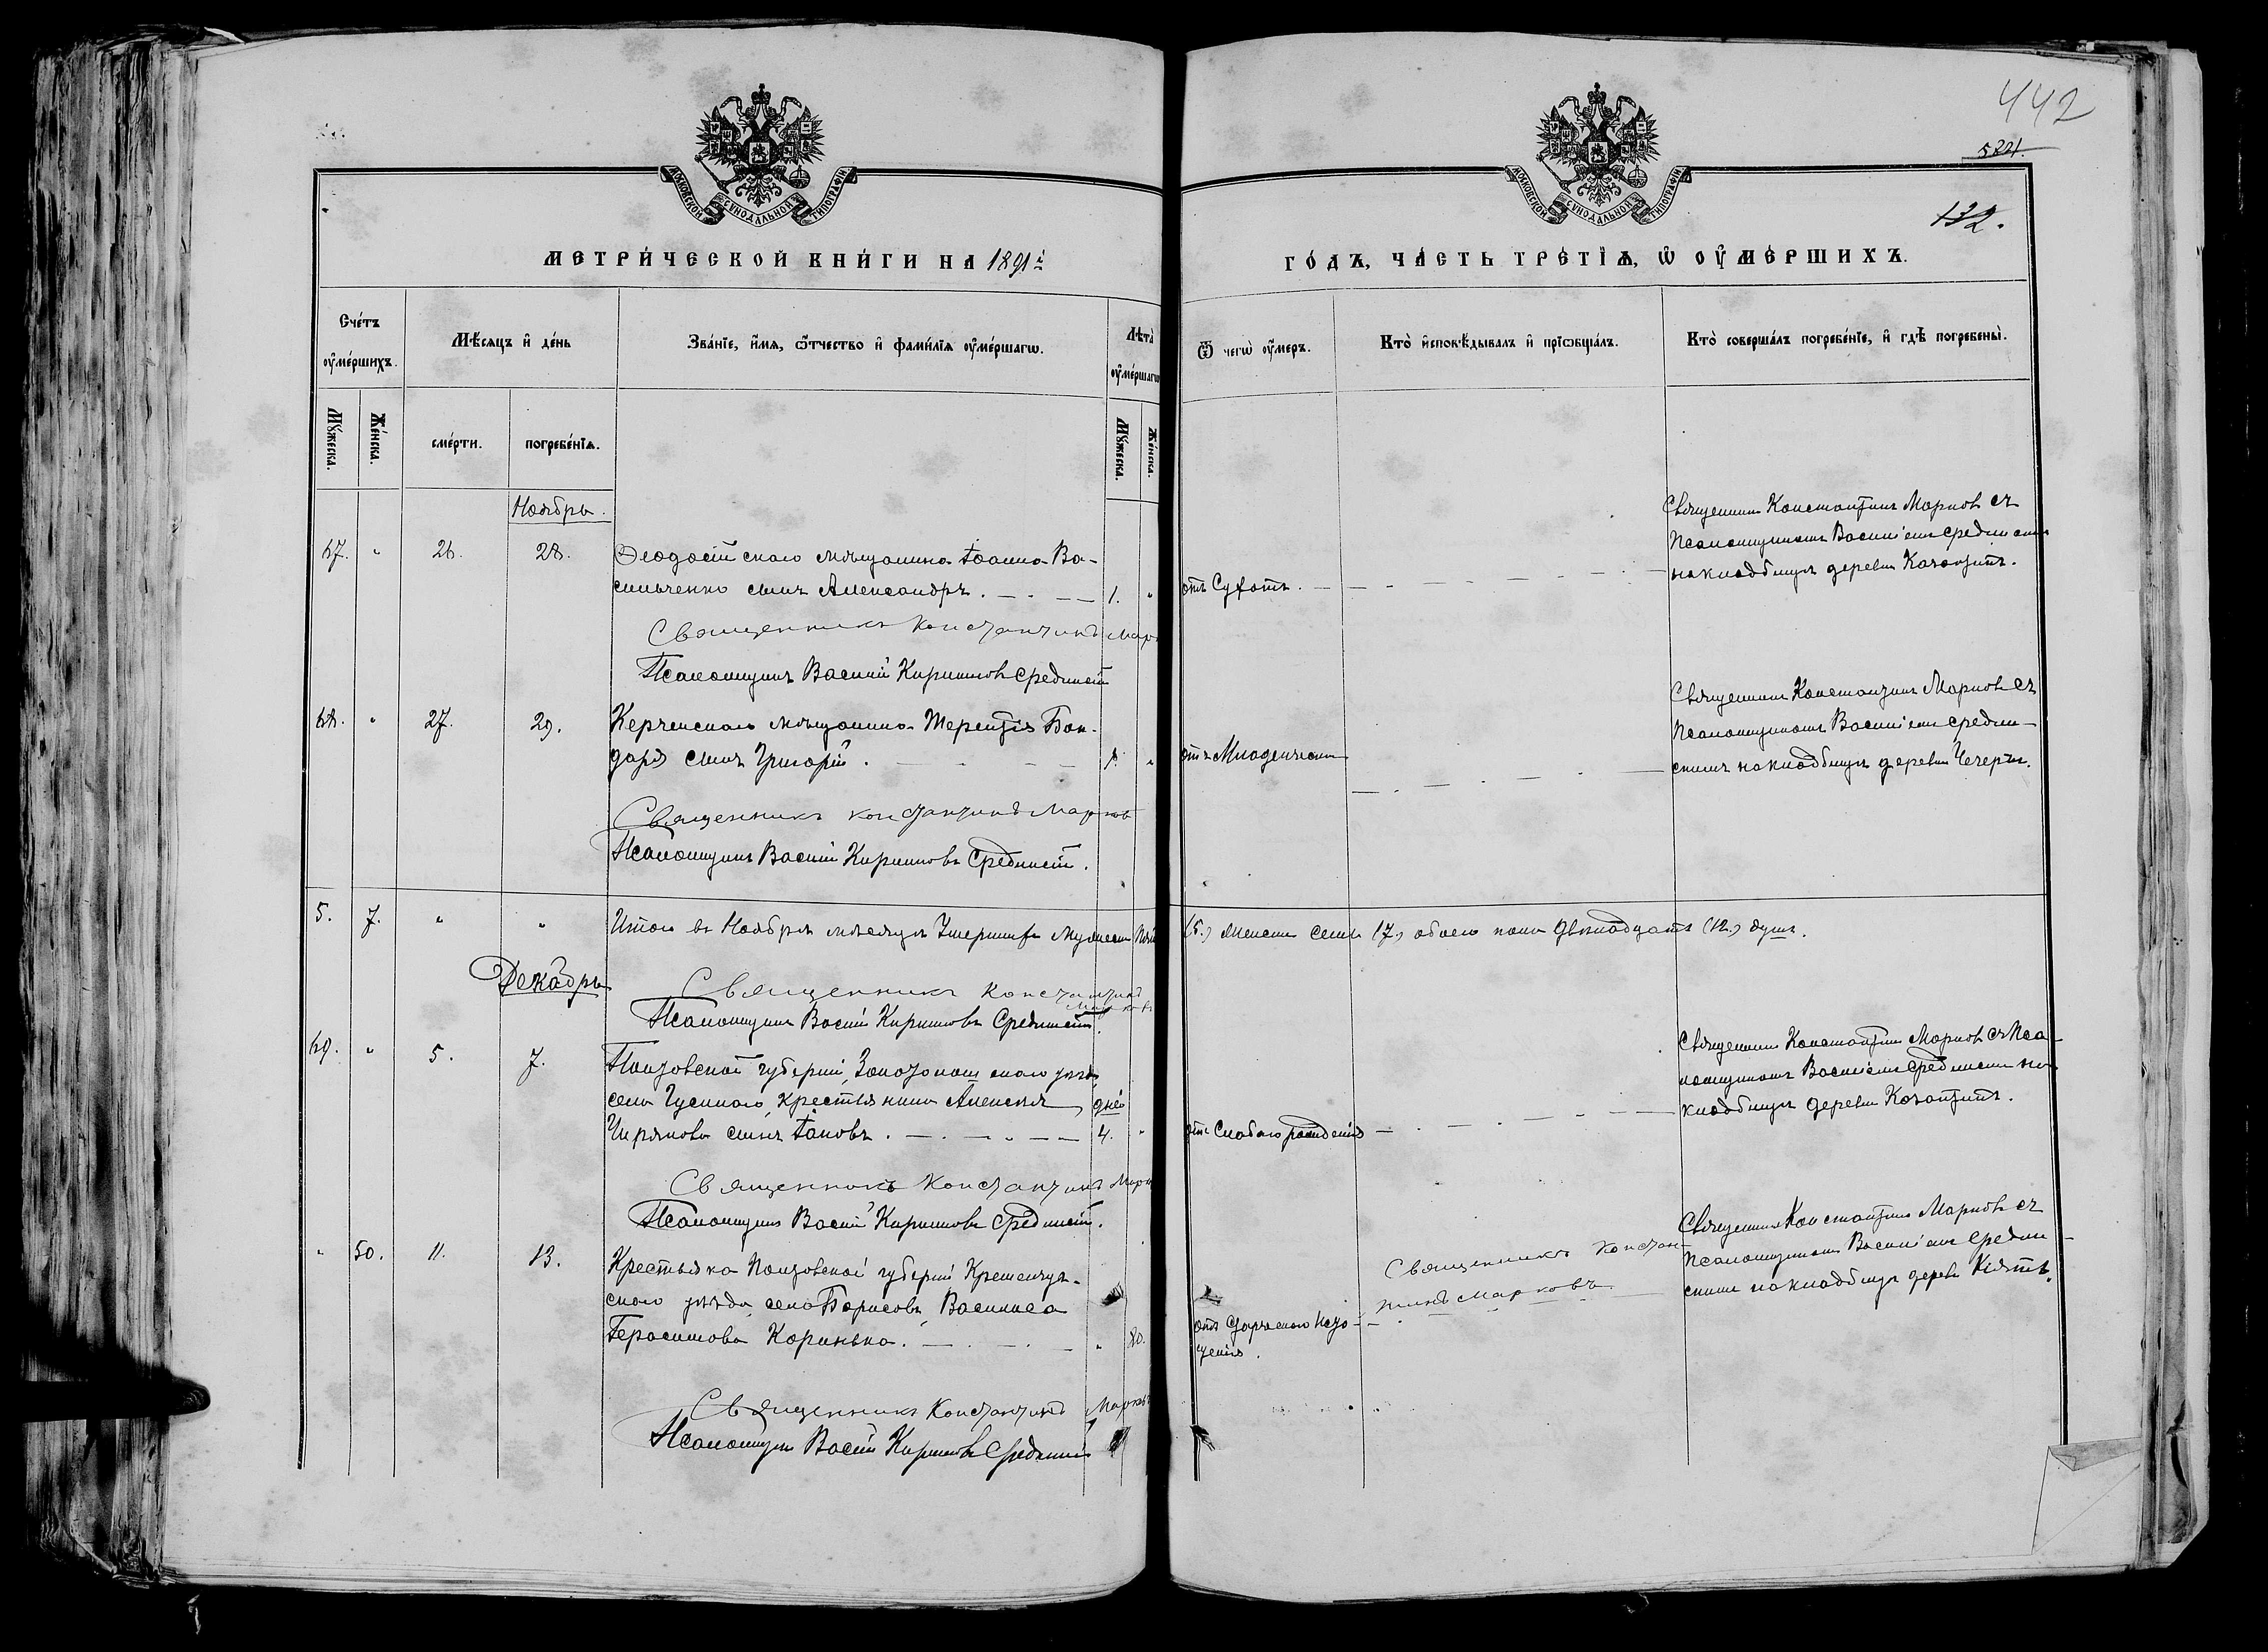 442
521.
132.
МОСКОВСКОЙ СѴНОДАЛЬНОЙ ТИПОГРАФІИ
МОСКОВСКОЙ СѴНОДАЛЬНОЙ ТИПОГРАФІИ
МЕТРИ́ЧЕСКОЙ КНИ́ГИ НА 1891 й
ГО́ДЪ, ЧА́СТЬ ТРЕ́ТІѦ, Ѡ҆ ОУ҆МЕ́РШИХЪ.
Сче́тъ оу҆ме́ршихъ.
Мѣ́сяцъ и҆ де́нь
Зва́нїе, и҆́мѧ, ѻ҆́тчество и҆ фами́лїѧ оу҆ме́ршагѡ.
Лѣ́та оу҆ме́ршагѡ
Ѿ чегѡ̀ оу҆́меръ.
Кто̀ и҆сповѣ́дывалъ и҆ прїѡбща́лъ.
Кто̀ соверша́лъ погребе́нїе, и҆ гдѣ̀ погребены̀.
Мꙋ́жеска.
Же́нска.
сме́рти.
погребе́нїѧ.
Мꙋ́жеска.
Же́нска.
Ноябрь.
47. " 26. 28. Ѳеодосійскаго мѣщанина Іоанна Ва-
сильченко сынъ Александръ. 1. " отъ Сухотъ.
Священникъ Константинъ Марковъ съ
Псаломщикомъ Василіемъ Средин
на кладбищѣ деревни
Священникъ Константинъ Мар
Псаломщикъ Василій Кирилловъ Срединскій
48. " 27. 29. Керченскаго мѣщанина Терентія Бон-
даря сынъ Григорій. " отъ Младенческ
Священникъ Константинъ Марковъ съ
Псаломщикомъ Василіемъ Средин-
скимъ на кладбищѣ деревни
Священникъ Константинъ Марковъ
Псаломщикъ Василій Кирилловъ Срединскій.
5. 7. " " Итого въ Ноябрѣ мѣсяцѣ Умершихъ Мужеска (5.) Женска семь (7.) обоего пола двѣнадцать (12.) душъ.
Декабрь
Священникъ Константинъ
Марковъ
Псаломщикъ Василій Кирилловъ Срединскій.
49. " 5. 7. Полтовской губерніи, Золотоношскаго уѣзда
села Гусинаго, крестьянина Алексѣя дней
Чирякова сынъ Іаковъ. 4. " отъ Слабаго рожденія
Священникъ Константинъ Марковъ съ Пса-
ломщикомъ Василіемъ Срединскимъ на
кладбищѣ деревни
Священникъ Константинъ Марк
Псаломщикъ Василій Кирилловъ Срединскій.
" 50. 11. 13. Крестьянка Полтовской губерніи Кременчуг-
скаго уѣзда, села Борисовъ, Василиса
Герасимова Коринька. " 80. отъ Старческаго Исто-
щенія.
Священникъ Констан-
тинъ Марковъ
Священникъ Константинъ Марковъ съ
Псаломщикомъ Василіемъ Средин-
скимъ на кладбищѣ деревни Кіятъ.
Священникъ Константинъ Марковъ
Псаломщикъ Василій Кирилловъ Срединскій